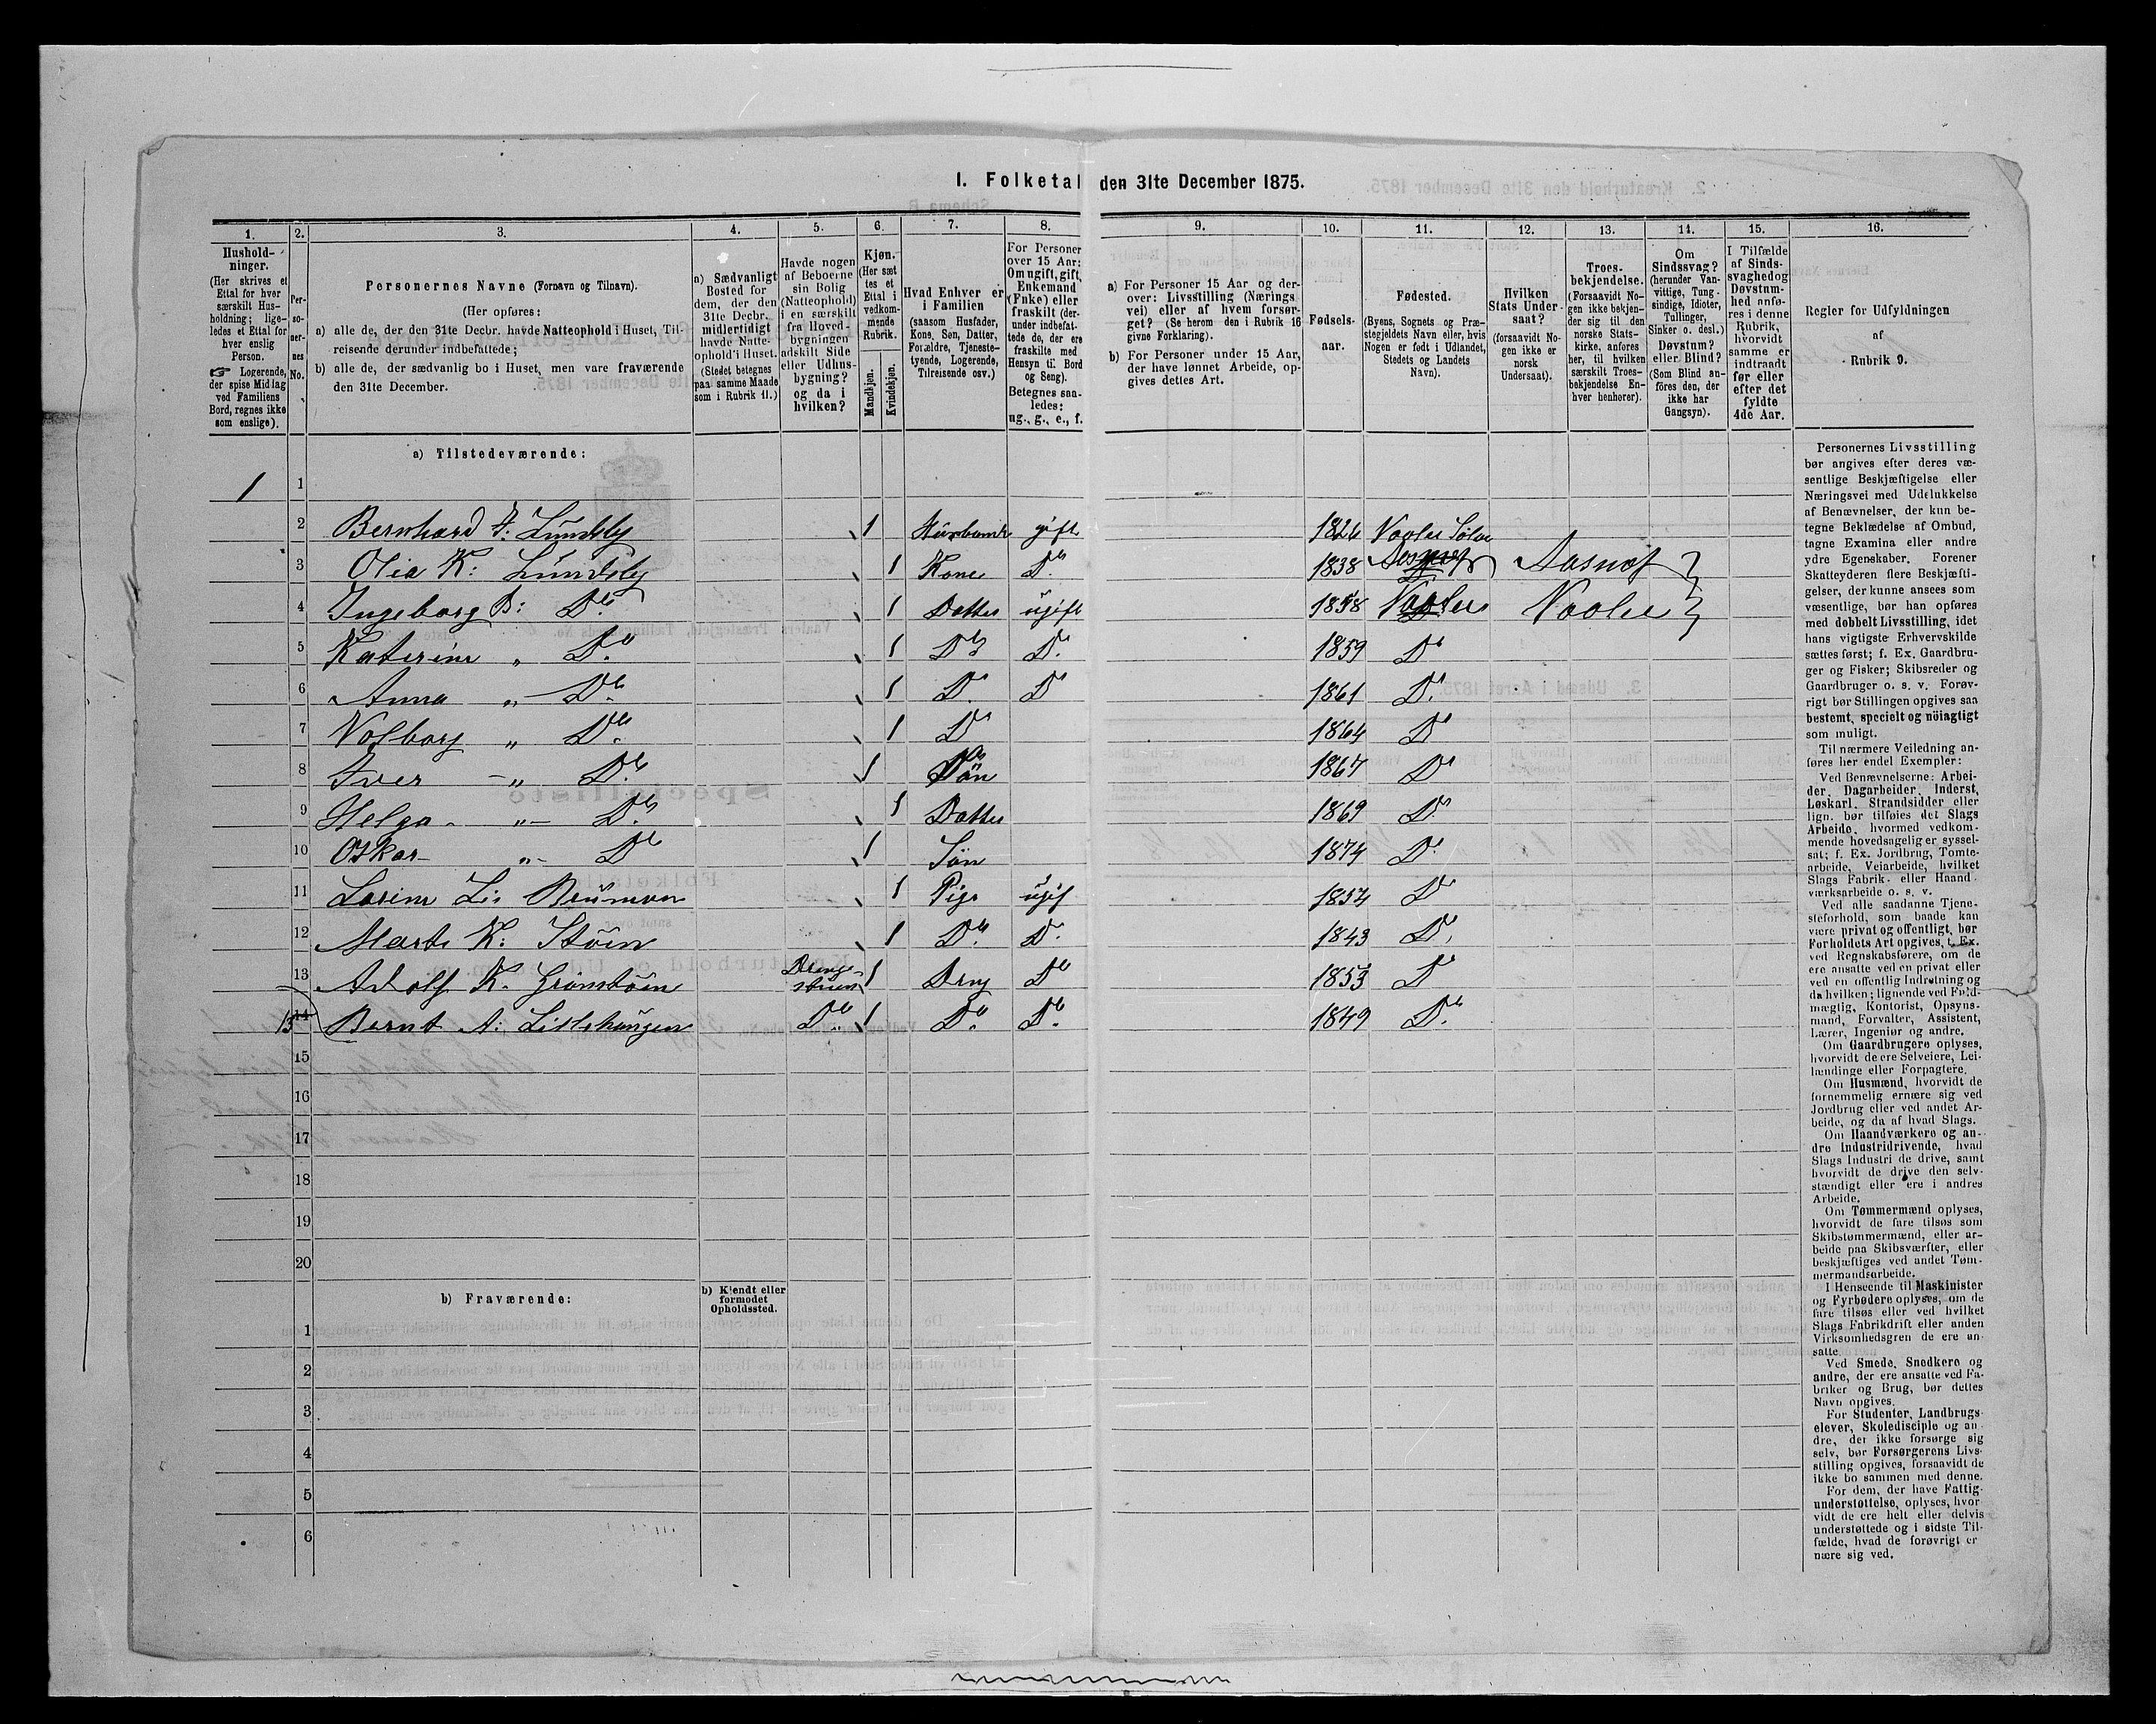 I. Folketal den 31te December 1875.
1. 2. 3. 4. 5. 6. 7. 8. 9. 10. 11. 12. 13. 14. 15. 16.
Hushold-
ninger.
(Her skrives et
Ettal for hver
særskilt Hus-
holdning; lige-
ledes et Ettal for
hver enslig
Person.
☞ Logerende,
der spise Middag
ved Familiens
Bord, regnes ikke
som enslige).
Per-
so-
ner-
nes
No.
Personernes Navne (Fornavn og Tilnavn).
(Her opføres:
a) alle de, der den 31te Decbr. havde Natteophold i Huset, Til-
reisende derunder indbefattede;
b) alle de, der sædvanlig bo i Huset, men vare fraværende
den 31te December.
a) Sædvanligt
Bosted for
dem, der den
31te Decbr.
midlertidigt
havde Natte-
ophold i Huset.
(Stedet betegnes
paa samme Maade
som i Rubrik 11.)
Havde nogen
af Beboerne
sin Bolig
(Natteophold)
i en særskilt
fra Hoved-
bygningen
adskilt Side
eller Udhus-
bygning?
og da i
hvilken?
Kjøn.
(Her sæt-
tes et
Ettal i
vedkom-
mende
Rubrik.
Mandkjøn.
Kvindekjøn.
Hvad Enhver er
i Familien
(saasom Husfader,
Kone, Søn, Datter,
Forældre, Tjeneste-
tyende, Logerende,
Tilreisende osv.)
For Personer
over 15 Aar:
Om ugift, gift,
Enkemand
(Enke) eller
fraskilt (der-
under indbefat-
tede de, der ere
fraskilte med
Hensyn til Bord
og Seng).
Betegnes saa-
ledes:
ug., g., e., f.
a) For Personer 15 Aar og der-
over: Livsstilling (Nærings
vei) eller af hvem forsør-
get? (Se herom den i Rubrik 16
givne Forklaring).
b) For Personer under 15 Aar,
der have lønnet Arbeide, op-
gives dettes Art.
Fødsels-
aar.
Fødested.
(Byens, Sognets og Præ-
stegjeldets Navn eller, hvis
Nogen er født i Udlandet,
Stedets og Landets
Navn).
Hvilken
Stats Under-
saat?
(forsaavidt No-
gen ikke er
norsk
Undersaat).
Troes-
bekjendelse.
(Forsaavidt No-
gen ikke bekjen-
der sig til den
norske Stats-
kirke, anføres
her, til hvilken
særskilt Troes-
bekjendelse En-
hver henhører).
Om
Sindssvag?
(herunder Van-
vittige, Tung-
sindige, Idioter,
Tullinger,
Sinker o. desl.)
Døvstum?
eller Blind?
(Som Blind an-
føres den, der
ikke har
Gangsyn).
I Tilfælde
af Sinds-
svaghed og
Døvstum-
hed anfø-
res i denne
Rubrik,
hvorvidt
samme er
indtraadt
før eller
efter det
fyldte
4de Aar.
Regler for Udfyldningen
af
Rubrik 9.
a) Tilstedeværende:
1 1
2 Bernhard F: Lundsby 1 gift 1826 Vaaler
3 Olia K: Lundsby 1 Kone Do. 1838 Aasnæs
4 Ingeborg B: Do. 1 Datter ugift 1858 Vaaler Vaaler
5 Katerine „ Do. 1 Do Do. 1859 Do
6 Anna „ Do. 1 Do. Do 1861 Do.
7 Valborg „ Do. 1 Do 1864 Do
8 Iver „ Do. 1 Søn 1867 Do
9 Helga „ Do. 1 Datter 1869 Do.
10 Oskar „ Do 1 Søn 1874 Do.
11 1 Pige ugif 1854 Do
12 Marte K: Støen 1 Do. Do. 1843 Do.
13 Adolf K. Grønstøen Drenge-
stuen 1 Dreng Do 1853 Do
13 14 Bernt A: Do. 1 Do. Do. 1849 Do.
15
16
17
18
19
20
b) Fraværende:
b) Kjendt eller
formodet
Opholdssted.
1
2
3
4
5
6
Personernes Livsstilling
bør angives efter deres væ-
sentlige Beskjæftigelse eller
Næringsvei med Udelukkelse
af Benævnelser, der kun be-
tegne Beklædelse af Ombud,
tagne Examina eller andre
ydre Egenskaber. Forener
Skatteyderen flere Beskjæfti-
gelser, der kunne ansees som
væsentlige, bør han opføres
med dobbelt Livsstilling, idet
hans vigtigste Erhvervskilde
sættes først; f. Ex. Gaardbru-
ger og Fisker; Skibsreder og
Gaardbruger o. s. v. Forøv-
rigt bør Stillingen opgives saa
bestemt, specielt og nöiagtigt
som muligt.
Til nærmere Veiledning an-
føres her endel Exempler:
Ved Benævnelserne: Arbei-
der, Dagarbeider, Inderst,
Løskarl, Strandsidder eller
lign. bør tilføies det Slags
Arbeide, hvormed vedkom-
mende hovedsagelig er syssel-
sat; f. Ex. Jordbrug, Tomte-
arbeide, Veiarbeide, hvilket
Slags Fabrik- eller Haand-
værksarbeide o. s. v.
Ved alle saadanne Tjene-
steforhold, som baade kan
være privat og offentligt, bør
Forholdets Art opgives, t. Ex.
ved Regnskabsførere, om de
ere ansatte ved en privat eller
ved en offentlig Indretning og
da hvilken; lignende ved Fuld-
mægtig, Kontorist, Opsyns-
mand, Forvalter, Assistent,
Lærer, Ingeniør og andre.
Om Gaardbrugere oplyses,
hvorvidt de ere Selveiere, Lei-
lændinge eller Forpagtere.
Om Husmænd, hvorvidt de
fornemmelig ernære sig ved
Jordbrug eller ved andet Ar-
beide, og da af hvad Slags.
Om Haandværkere og an-
dre Industridrivende, hvad
Slags Industri de drive, samt
hvorvidt de drive den selv-
stændigt eller ere i andres
Arbeide.
Om Tømmermænd oplyses,
hvorvidt de fare tilsøs som
Skibstømmermænd, eller ar-
beide paa Skibsværfter, eller
beskjæftiges ved andet Tøm-
mermandsarbeide.
I Henseende til Maskinister
og Fyrbødere oplyses, om de
fare tilsøs eller ved hvilket
Slags Fabrikdrift eller anden
Virksomhedsgren de ere an-
satte.
Ved Smede, Snedkere og
andre, der ere ansatte ved Fa-
briker og Brug, bør dettes
Navn opgives.
For Studenter, Landbrugs-
elever, Skoledisciple og an-
dre, der ikke forsørge sig
selv, bør Forsørgerens Livs-
stilling opgives, forsaavidt de
ikke bo sammen med denne.
For dem, der have Fattig-
understøttelse, oplyses, hvor
vidt de ere helt eller delvis
understøttede og i sidste Til-
fælde, hvad de forøvrigt er
nære sig ved.